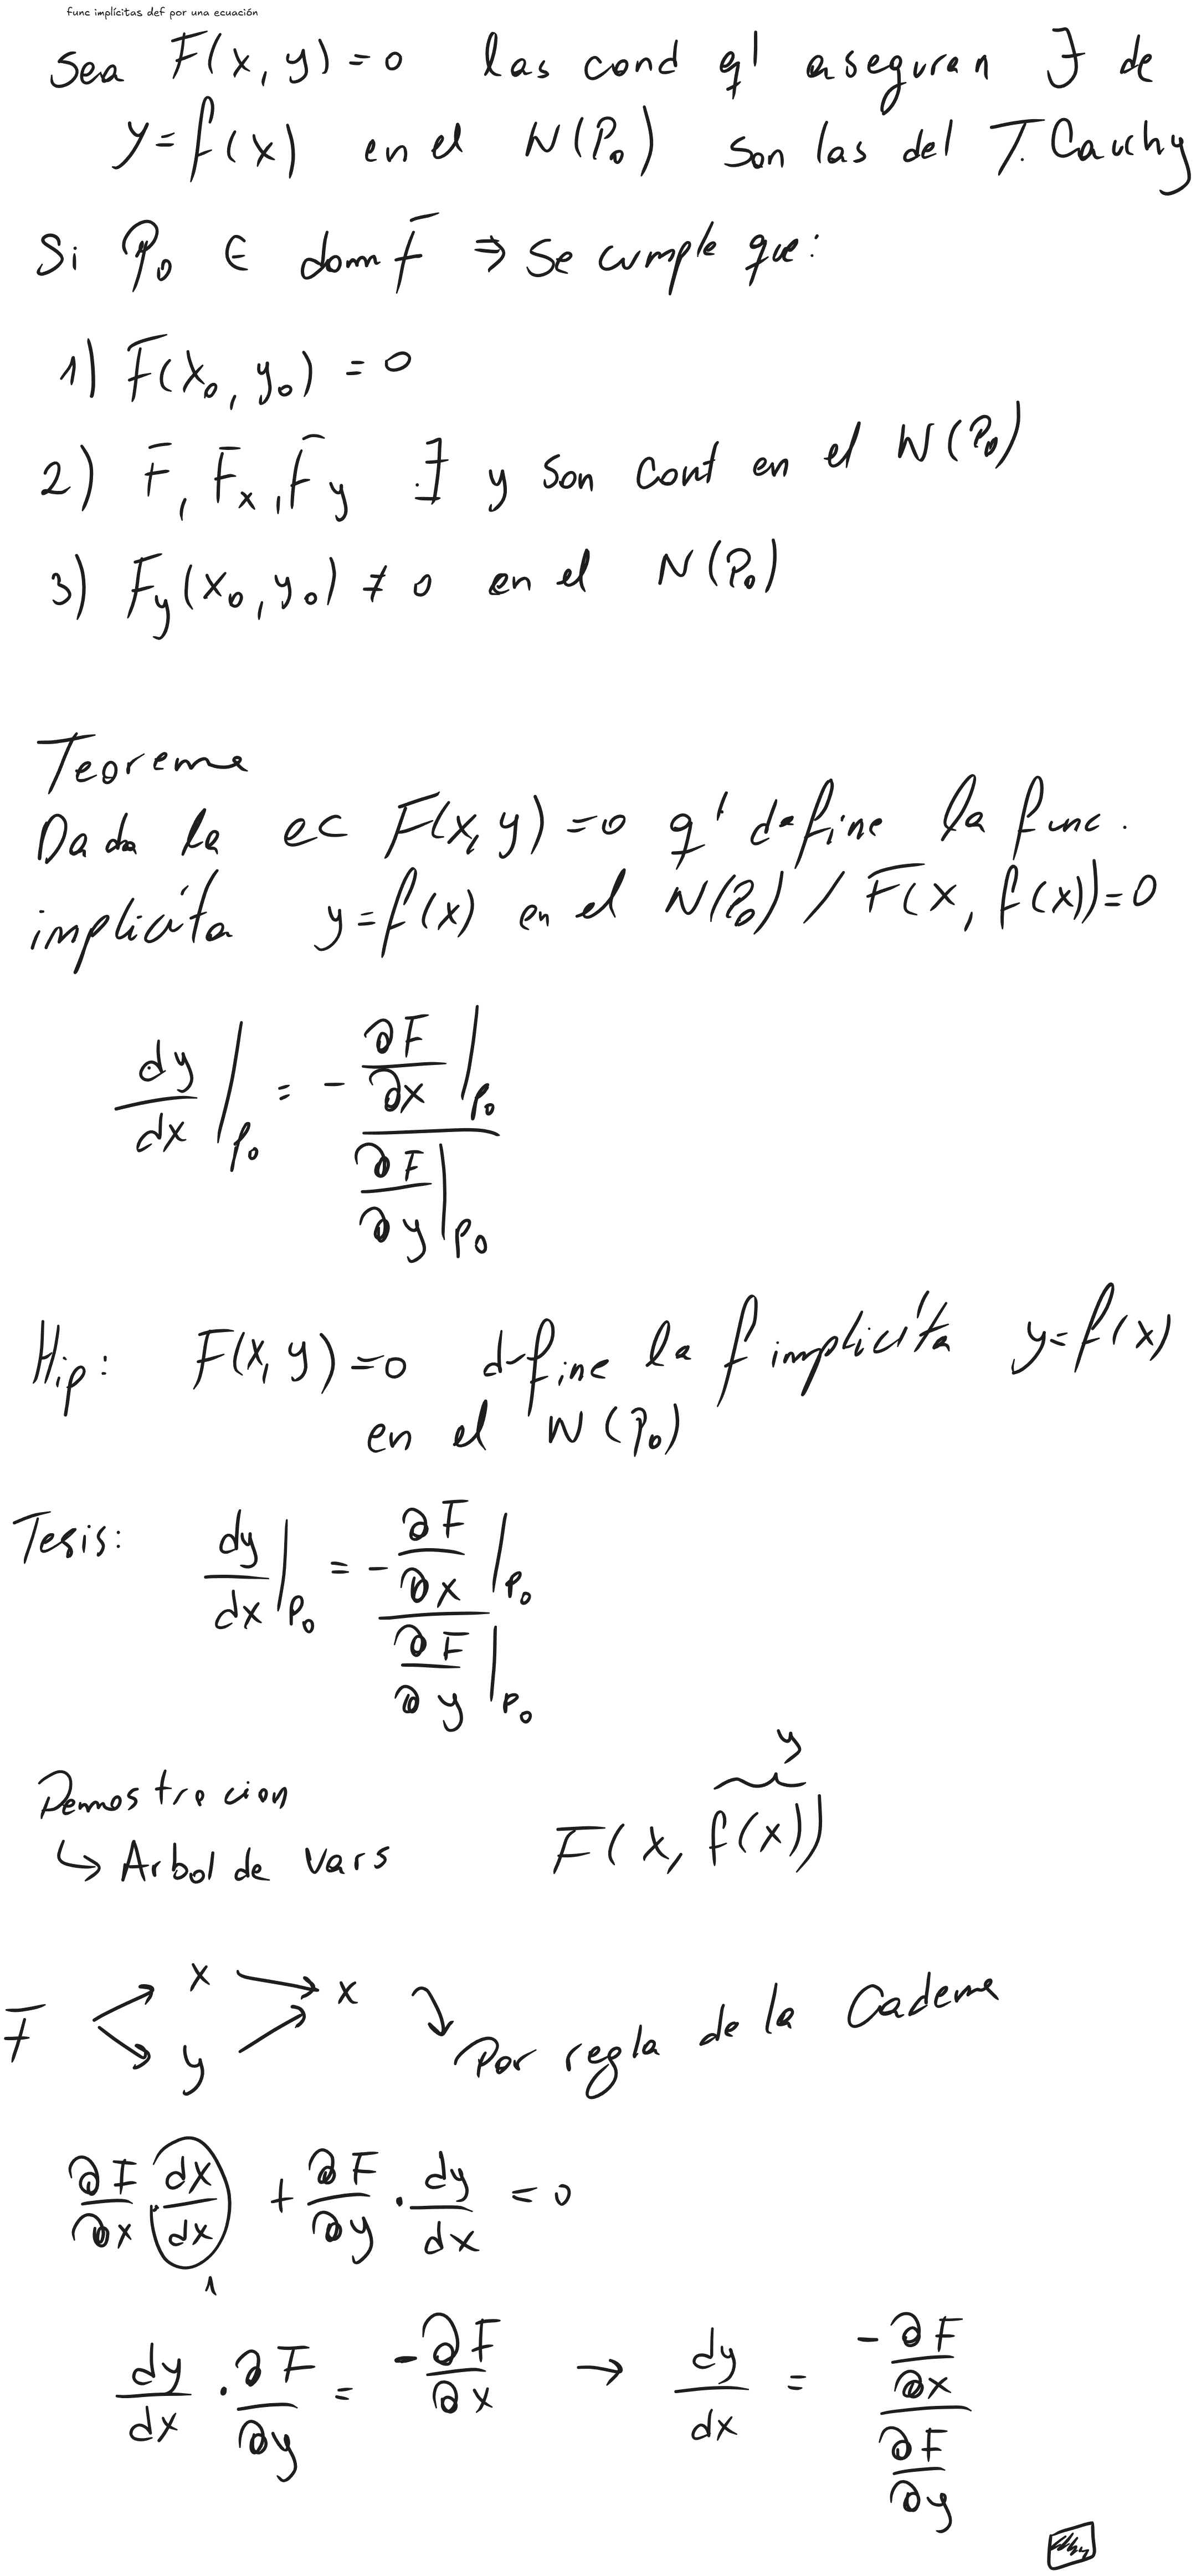 func implícitas def por una ecuación
Sea F(x, y) = 0 las cond q' aseguran ∃ de
y = f(x) en el N(P₀) son las del T. Cauchy
Si P₀ ∈ dom F ⇒ se cumple que:
1) F(x₀, y₀) = 0
2) F, Fₓ, F_y ∃ y son cont en el N(P₀)
3) F_y(x₀, y₀) ≠ 0 en el N(P₀)
Teorema
Dada la ec F(x, y) = 0 q' define la func.
implicita y = f(x) en el N(P₀) / F(x, f(x)) = 0
dy/dx |P₀ = - ∂F/∂x |P₀ / ∂F/∂y |P₀
Hip: F(x, y) = 0 define la f implicita y = f(x)
en el N(P₀)
Tesis: dy/dx |P₀ = - ∂F/∂x |P₀ / ∂F/∂y |P₀
y
Demostracion
↳ Arbol de vars F(x, f(x))
x x
F
y
Por regla de la Cadena
∂F/∂x · dx/dx + ∂F/∂y · dy/dx = 0
1
dy/dx · ∂F/∂y = -∂F/∂x → dy/dx = -∂F/∂x / ∂F/∂y